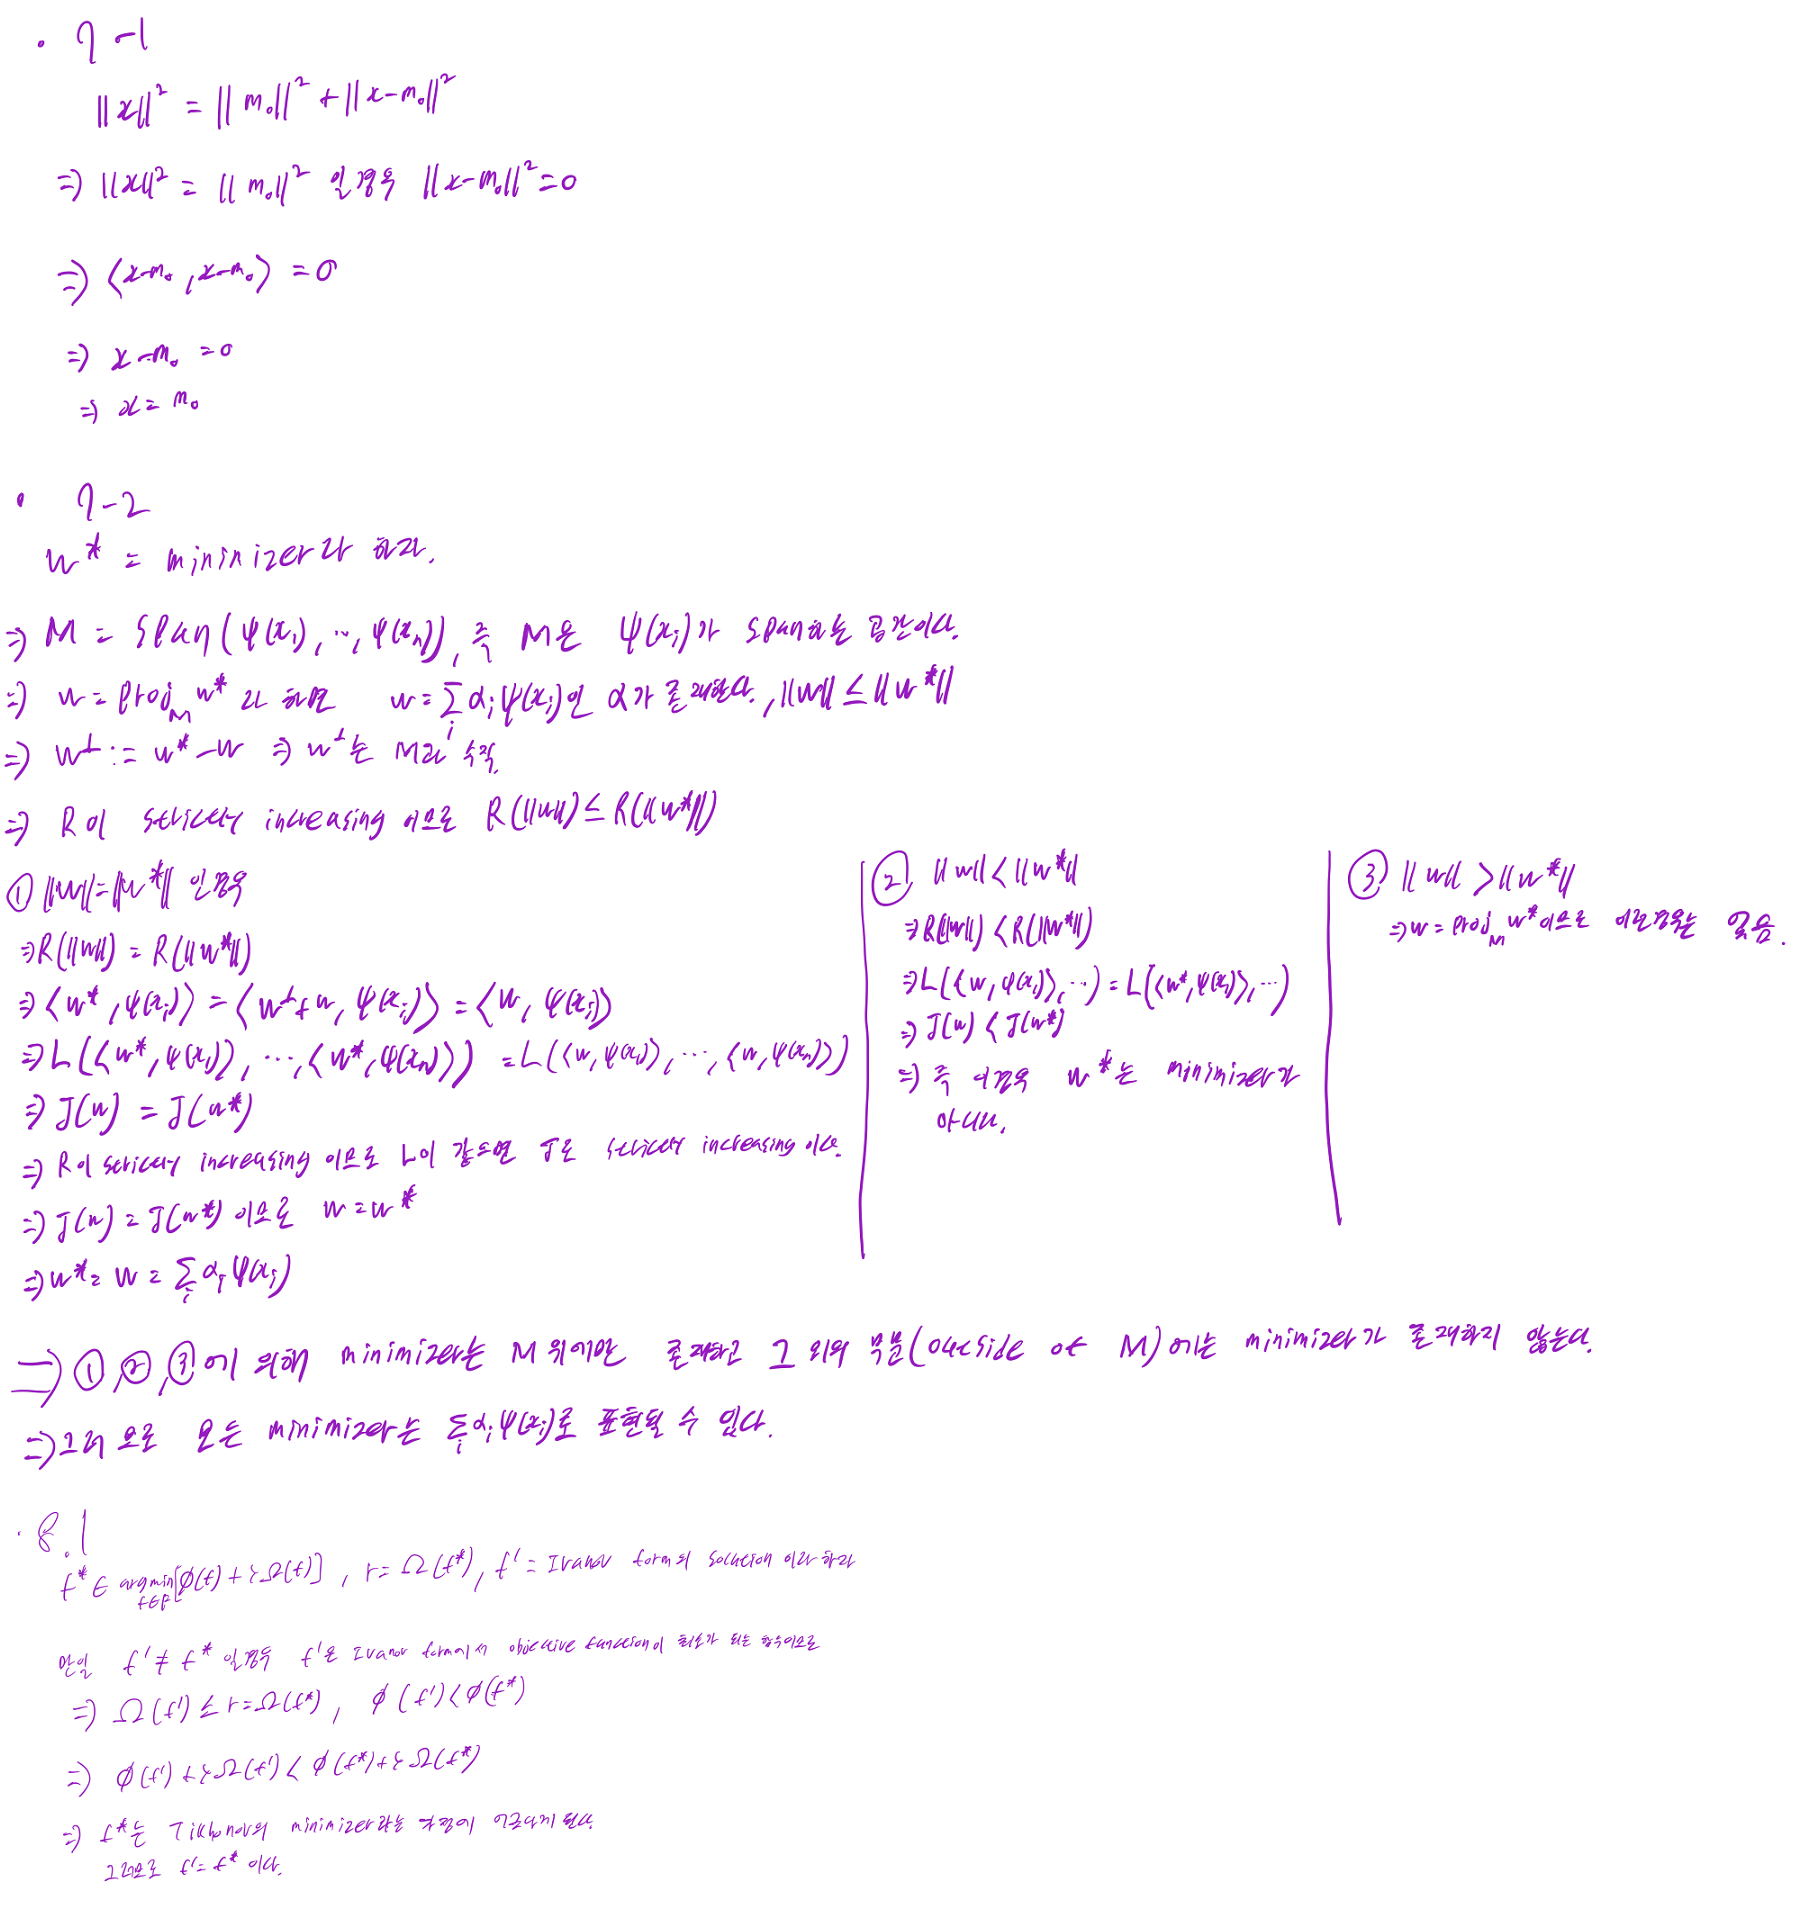 · 7-1
||x||² = ||m₀||² + ||x-m₀||²
⇒ ||x||² = ||m₀||² 일 경우 ||x-m₀||² = 0
⇒ ⟨x-m₀, x-m₀⟩ = 0
⇒ x-m₀ = 0
⇒ x = m₀
· 7-2
w* = minimizer라 하자.
⇒ M = span(ψ(x₁), …, ψ(xₙ)), 즉 M은 ψ(xᵢ)가 span하는 공간이다.
⇒ w = Proj_M w* 라 하면 w = Σᵢ αᵢψ(xᵢ)인 α가 존재한다., ||w|| ≤ ||w*||
⇒ w^⊥ := w* - w ⇒ w^⊥는 M과 수직.
⇒ R이 strictly increasing 이므로 R(||w||) ≤ R(||w*||)
① ||w|| = ||w*|| 인 경우
⇒ R(||w||) = R(||w*||)
⇒ ⟨w*, ψ(xᵢ)⟩ = ⟨w^⊥+w, ψ(xᵢ)⟩ = ⟨w, ψ(xᵢ)⟩
⇒ L(⟨w*, ψ(x₁)⟩, …, ⟨w*, ψ(xₙ)⟩) = L(⟨w, ψ(x₁)⟩, …, ⟨w, ψ(xₙ)⟩)
⇒ J(w) = J(w*)
⇒ R이 strictly increasing 이므로 L이 같으면 J도 strictly increasing 이다.
⇒ J(w) = J(w*) 이므로 w = w*
⇒ w* = w = Σᵢ αᵢψ(xᵢ)
② ||w|| < ||w*||
⇒ R(||w||) < R(||w*||)
⇒ L(⟨w, ψ(x₁)⟩, …) = L(⟨w*, ψ(x₁)⟩, …)
⇒ J(w) < J(w*)
⇒ 즉 이경우 w*는 minimizer가
아니다.
③ ||w|| > ||w*||
⇒ w = Proj_M w* 이므로 이런경우는 없음.
⇒ ①, ②, ③에 의해 minimizer는 M 위에만 존재하고 그 외의 부분(outside of M)에는 minimizer가 존재하지 않는다.
⇒ 그러므로 모든 minimizer는 Σᵢ αᵢψ(xᵢ)로 표현될 수 있다.
· 8.1
f* ∈ argmin_{f∈F}[φ(f) + λΩ(f)], r = Ω(f*), f' = Ivanov form의 solution 이라 하자
만일 f' ≠ f* 일경우 f'은 Ivanov form에서 objective function이 최소가 되는 함수이므로
⇒ Ω(f') ≤ r = Ω(f*), φ(f') < φ(f*)
⇒ φ(f') + λΩ(f') < φ(f*) + λΩ(f*)
⇒ f*는 Tikhonov의 minimizer라는 가정에 어긋나게 된다.
그러므로 f' = f* 이다.